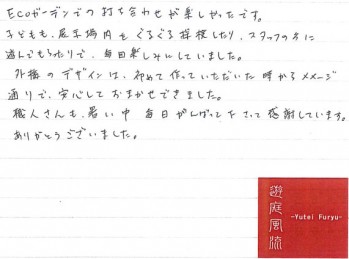 Ecoガーデンでの打ち合わせが楽しかったです。
子どもも、展示場内をぐるぐる探検したり、スタッフの方に
遊んでもらったりで、毎回楽しみにしていました。
外構のデザインは、初めて作っていただいた時からイメージ
通りで、安心しておまかせできました。
職人さんも、暑い中毎日がんばって下さって感謝しています。
ありがとうございました。
遊庭風流
-Yutei Furyu-